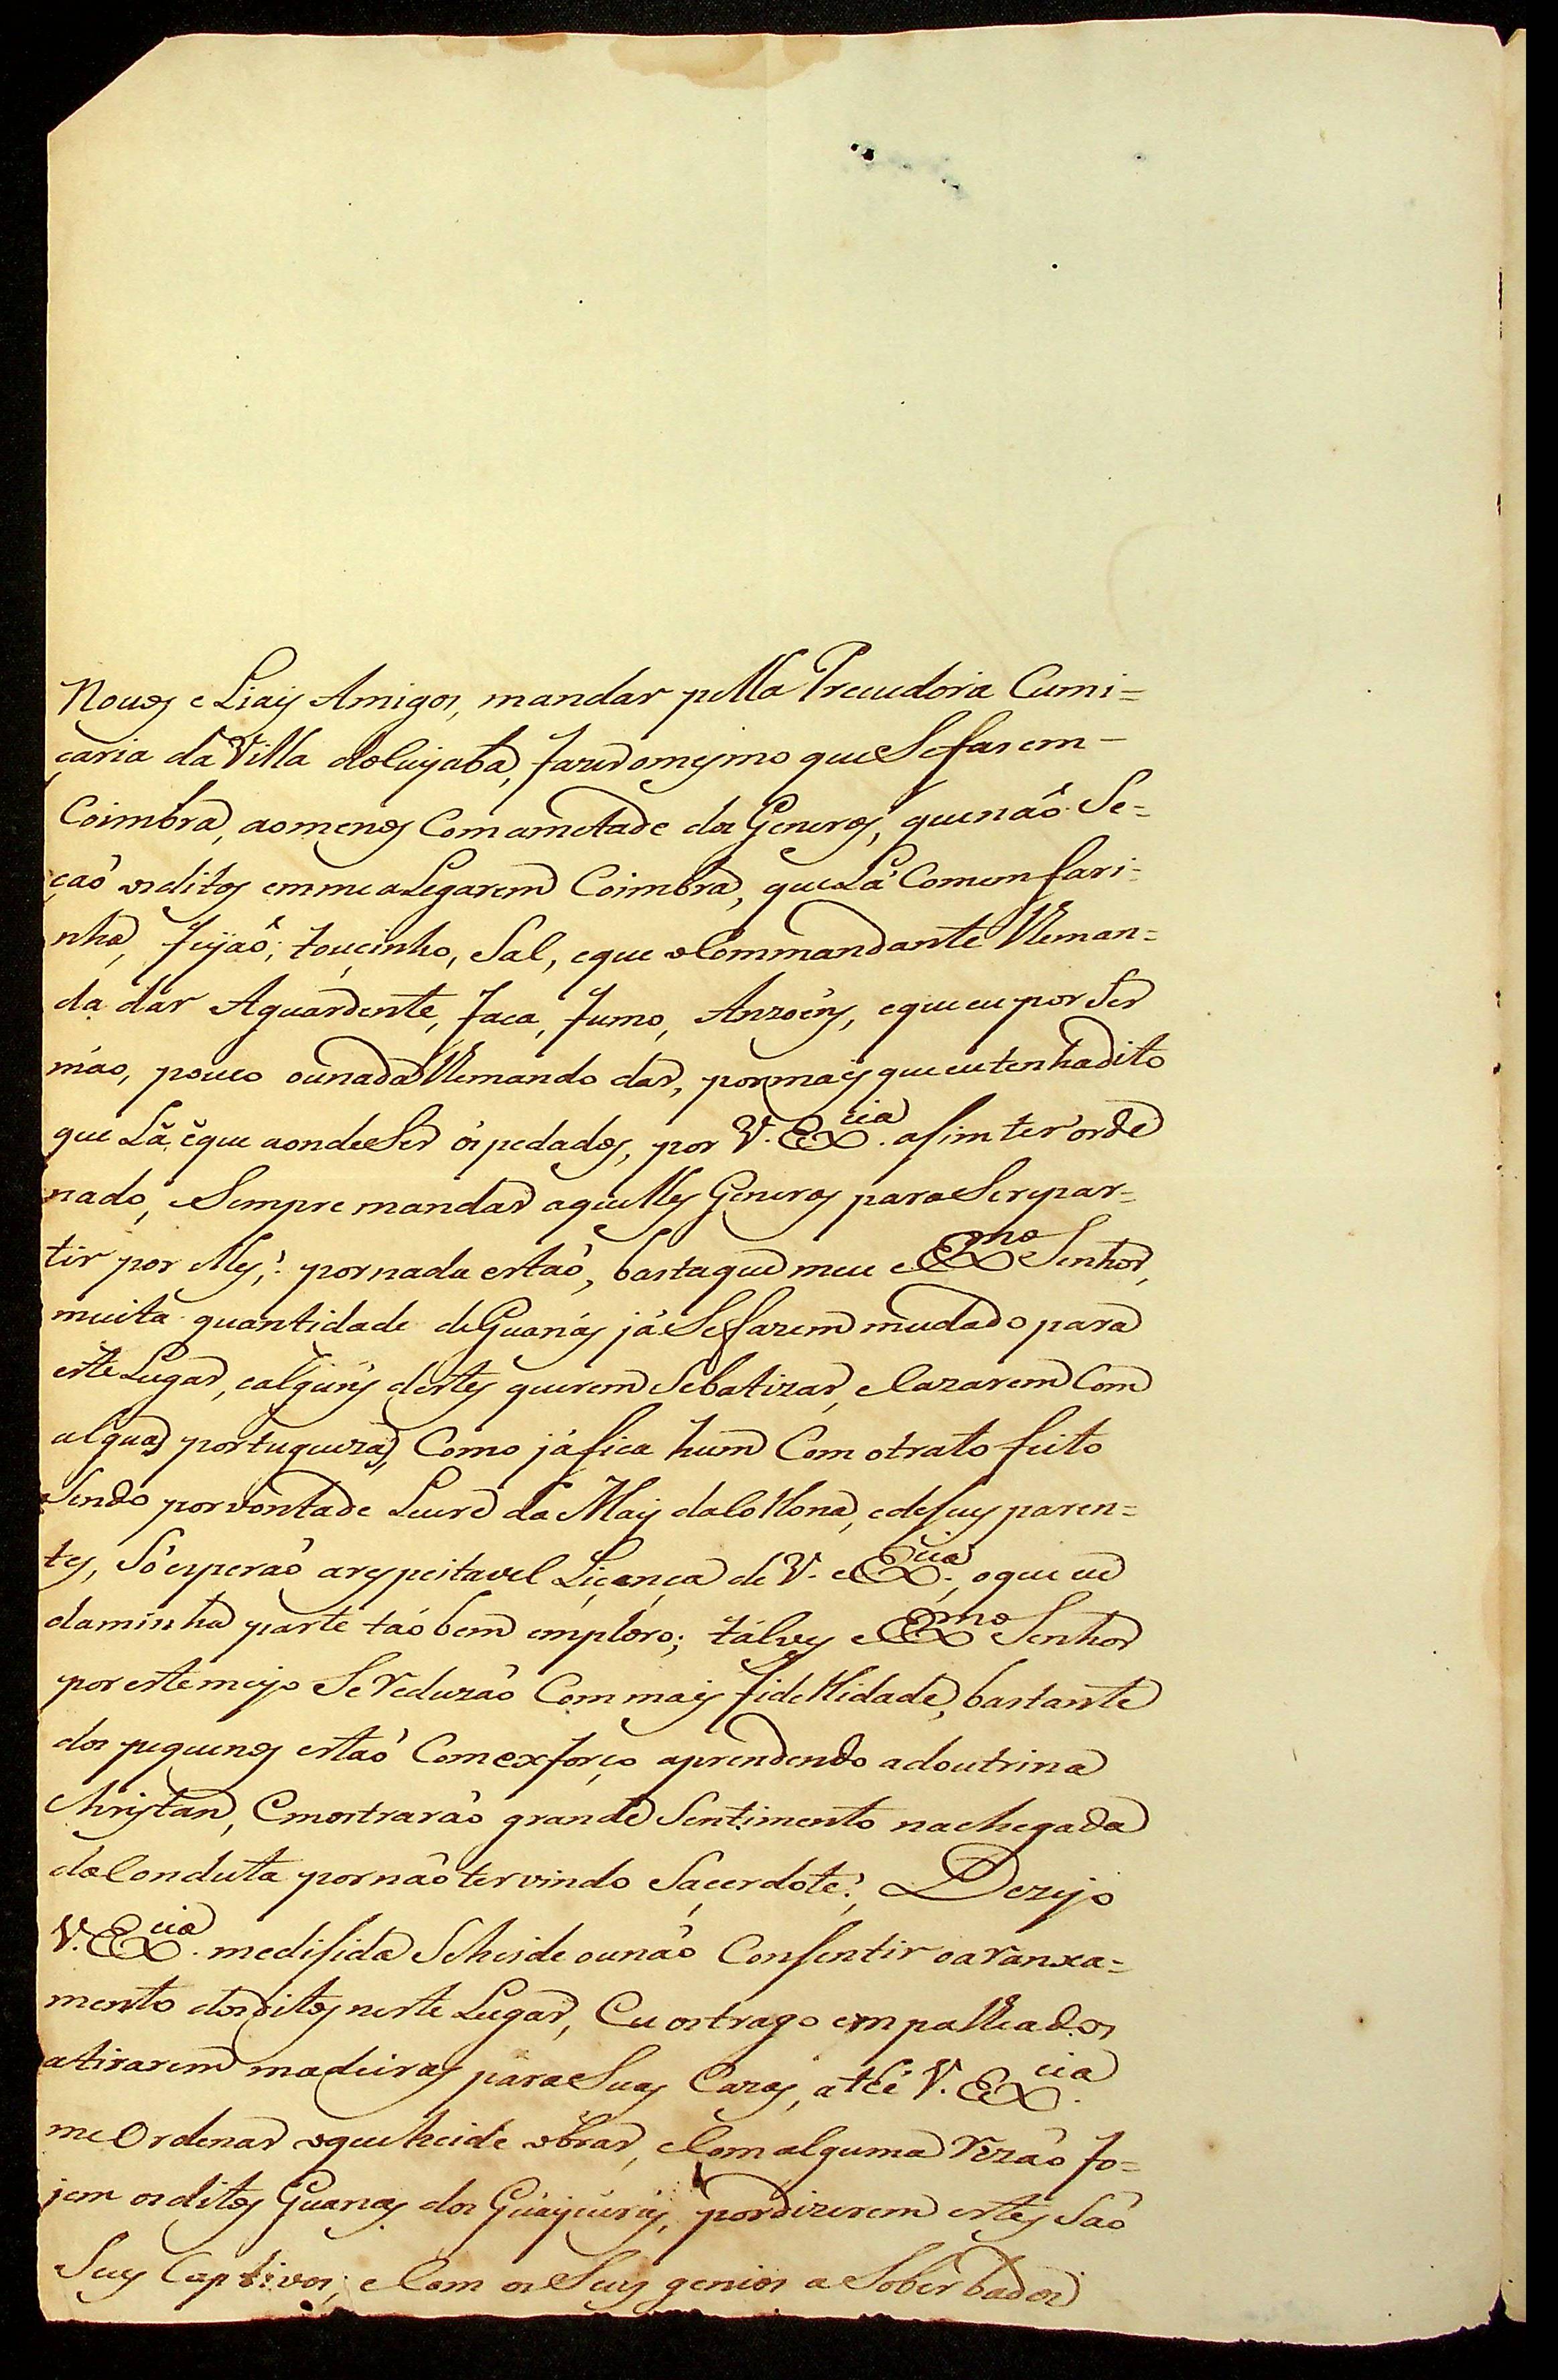 Noves e Liais Amigos, mandar pella Proveudoria Cumi=
çaria da Villa do Cuyabá, fazer omesmo que Sefas em-
Coimbra, aomenos Com ametade dos Generos, que não Se=
çaõ osditos emme aLegarem Coimbra, que Lá Comem fari=
nha, feijaõ, toucinho, Sal, eque oCommandante lleman=
da dar Aguardente, faca, fumo, Anzoeis, eque eu por Ser
máo, pouco ounada llemando dar, por mais que eu tenha dito
que Lá, éque aonde Ser ospedados, por V. Ex.cia asim ter orde
nado, Sempre mandar aquelles Generos para Serepar=
tir por elles; por nada estaõ, basta que meu Exmo Senhor,
muita quantidade de Guanás já Se fazem mudado para
este Lugar, ealguns destes querem Sebatizar, eCazarem Com
alguas portuguezas, Como jáfica hum Com otrato feito
Sendo por vontade Livre da May daColhona, edeSeus paren=
tes, Só esperaõ arespeitavel Liçença de V. Ex.cia, oque eu
daminha parte taõbem emploro; tálves Exmo Senhor
por este meyo Se reduzaõ Com mais fidellidade, bastante
dos piquenos estaõ Com exforço aprendendo adoutrina
Christan, emostraraõ grande Sentimento nachegada
daConduta por não ter vindo Saçerdote; Dezejo
V. Ex.cia medisida Seheide ounão Consentir oaranxa=
mento dosditos neste Lugar, Eu ostrago empalleados
atirarem madeiras para Suas Cazas, athé V. Ex.cia
me Ordenar oqueheide obrar, eCom alguma rezaõ fo=
jem osditos Guanas dos Guaycurús, por dizerem estes Saõ
Seus Captivos, eCom os Seus genios aSoberbados